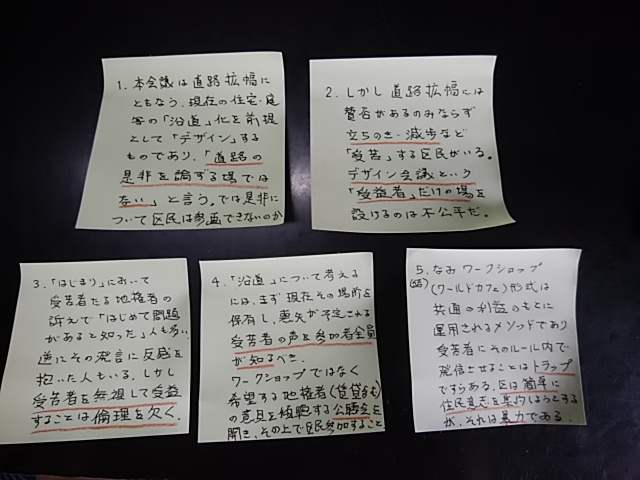 1. 本会議は道路拡幅に
ともなう、現在の住宅・庭
等の「沿道」化を前提
として「デザイン」する
ものであり、「道路の
是非を論ずる場では
ない」と言う。では是非に
ついて区民は参画できないのか
2. しかし道路拡幅には
賛否があるのみならず
立ちのき・減歩など
「受苦」する区民がいる。
デザイン会議という
「受益者」だけの場を
設けるのは不公平だ。
3. 「はじまり」において
受苦者たる地権者の
訴えで「はじめて問題
があると知った」人も多い
逆にその発言に反感を
抱いた人もいる。しかし
受苦者を無視して受益
することは倫理を欠く。
4. 「沿道」について考える
には、まず現在その場所を
保有し、喪失が予定される
受苦者の声を参加者全員
が知るべき。
ワークショップではなく
希望する地権者(賃貸者も)
の意見を傾聴する公聴会を
開き、その上で区民参加すること
5. なおワークショップ
(ワールドカフェ)形式は
共通の利益のもとに
運用されるメソッドであり
受苦者にそのルール内で
発信させることはトラップ
ですらある。区は簡単に
住民意志を集約しようとする
が、それは暴力である。